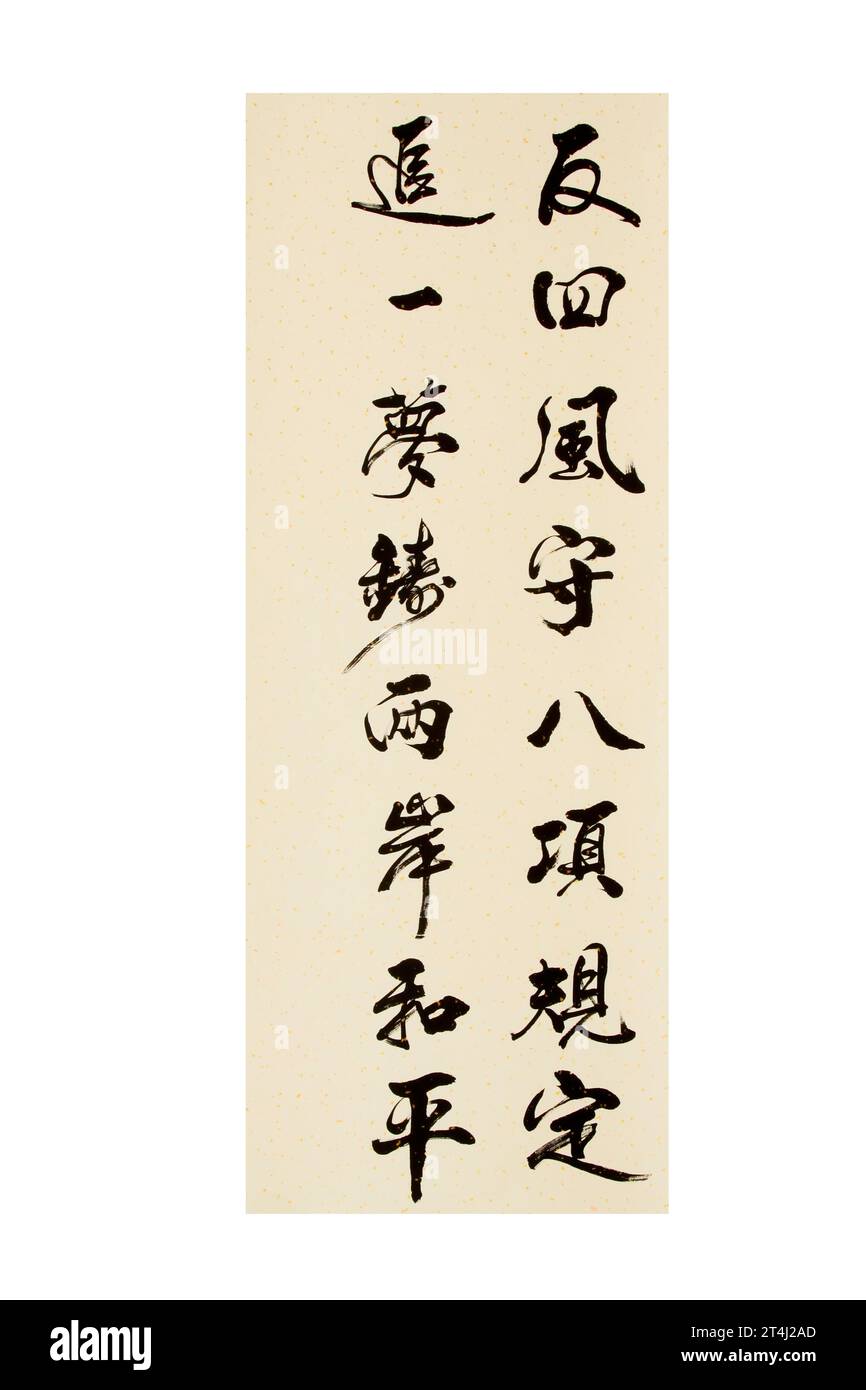 反四風守八項規定
追一夢鑄兩岸和平
alamy
alamy
Image ID: 2T4J2AD
www.alamy.com